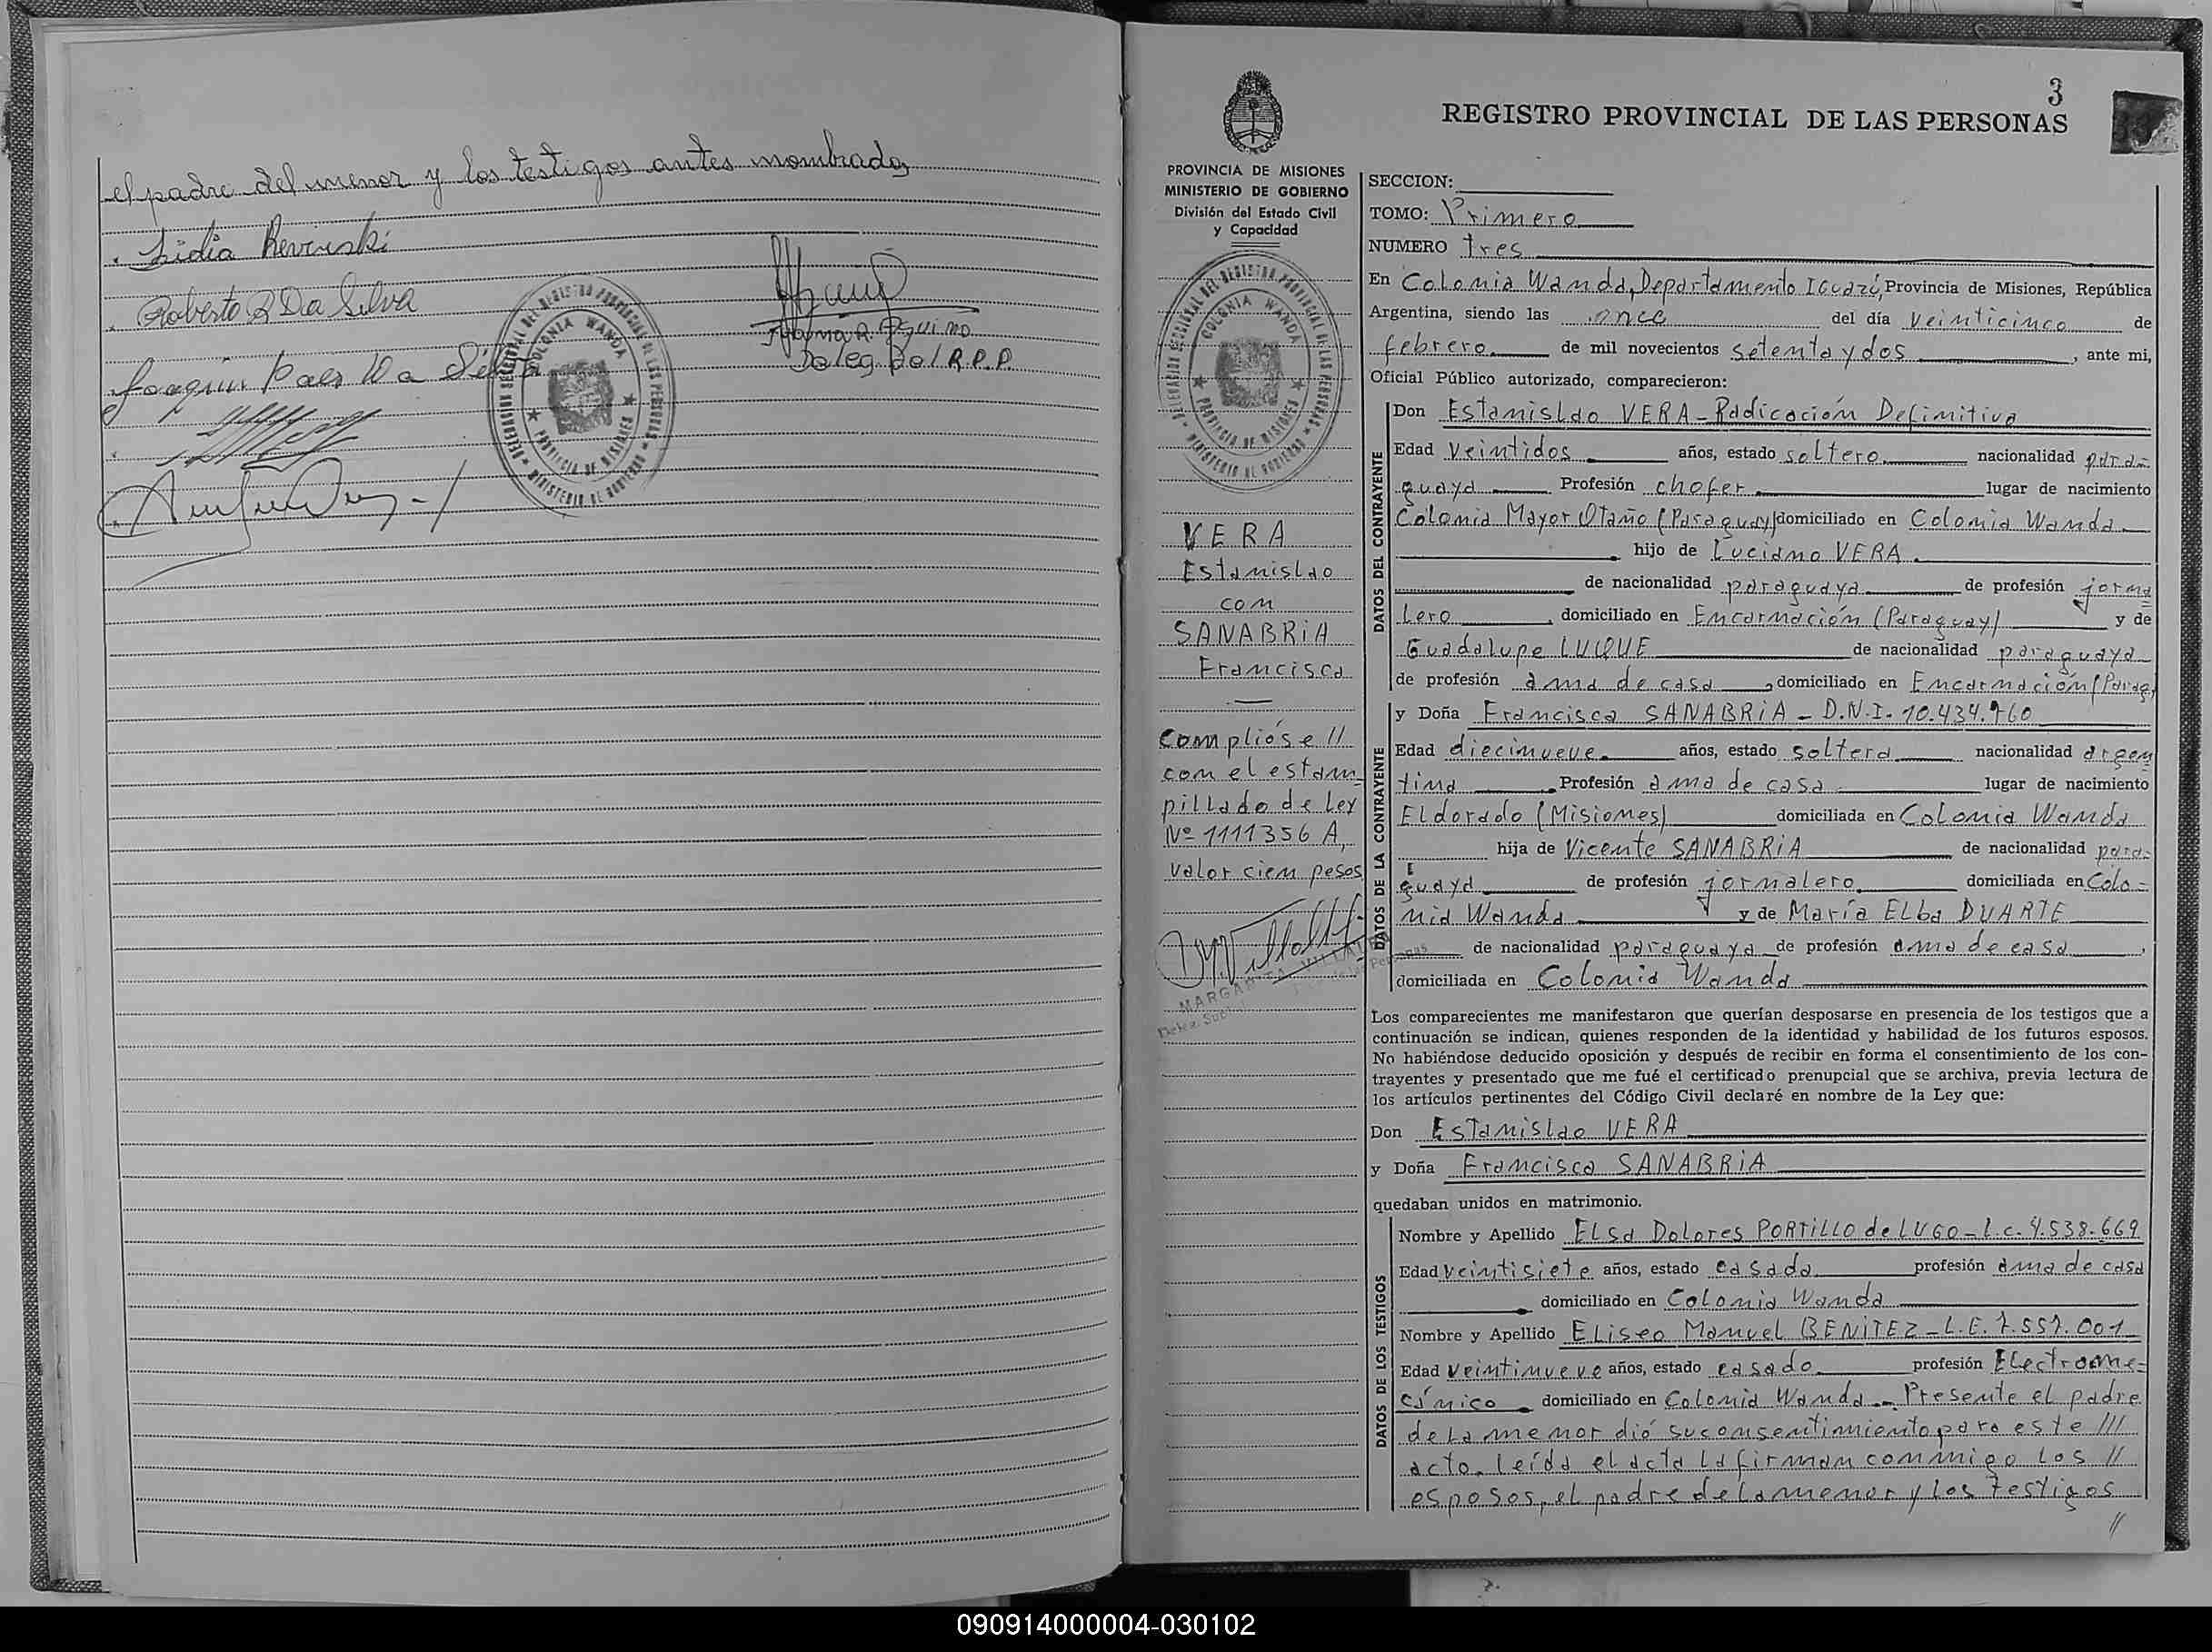 el padre del menor y los testigos antes mombrados
Lidia Revinski
Roberto R Da Silva
Joaquin Paes Da Silva
Deleg. del R.P.P.
DELEGACION SECCIONAL DEL REGISTRO PROVINCIAL DE LAS PERSONAS
COLONIA WANDA
PROVINCIA DE MISIONES
MINISTERIO DE GOBIERNO
3
REGISTRO PROVINCIAL DE LAS PERSONAS
PROVINCIA DE MISIONES
MINISTERIO DE GOBIERNO
División del Estado Civil
y Capacidad
DELEGACION SECCIONAL DEL REGISTRO PROVINCIAL DE LAS PERSONAS
COLONIA WANDA
PROVINCIA DE MISIONES
MINISTERIO DE GOBIERNO
VERA
Estanislao
con
SANABRIA
Francisca
Complióse //
con el estam
pillado de Ley
Nº 1111356 A,
valor cien pesos
SECCION:
TOMO: Primero
NUMERO tres
En Colonia Wanda, Departamento Iguazú, Provincia de Misiones, República
Argentina, siendo las once del día veinticinco de
febrero de mil novecientos setenta y dos, ante mi,
Oficial Público autorizado, comparecieron:
DATOS DEL CONTRAYENTE
Don Estanislao VERA - Radicación Definitiva
Edad veintidos años, estado soltero nacionalidad para-
guaya Profesión chofer lugar de nacimiento
Colonia Mayor Otaño (Paraguay) domiciliado en Colonia Wanda
hijo de Luciano VERA
de nacionalidad paraguaya de profesión jorna
lero, domiciliado en Encarnación (Paraguay) y de
Guadalupe LUQUE de nacionalidad paraguaya
de profesión ama de casa, domiciliado en Encarnación (Parag.
DATOS DE LA CONTRAYENTE
y Doña Francisca SANABRIA - D.N.I. 10.434.960
Edad diecinueve años, estado soltera nacionalidad argen
tina Profesión ama de casa lugar de nacimiento
Eldorado (Misiones) domiciliada en Colonia Wanda
hija de Vicente SANABRIA de nacionalidad para-
guaya de profesión jornalero domiciliada en Colo=
nia Wanda y de María Elba DUARTE
de nacionalidad paraguaya de profesión ama de casa,
domiciliada en Colonia Wanda
Los comparecientes me manifestaron que querían desposarse en presencia de los testigos que a
continuación se indican, quienes responden de la identidad y habilidad de los futuros esposos.
No habiéndose deducido oposición y después de recibir en forma el consentimiento de los con-
trayentes y presentado que me fué el certificado prenupcial que se archiva, previa lectura de
los artículos pertinentes del Código Civil declaré en nombre de la Ley que:
Don Estanislao VERA
y Doña Francisca SANABRIA
quedaban unidos en matrimonio.
DATOS DE LOS TESTIGOS
Nombre y Apellido Elsa Dolores PORTILLO de LUGO - L.C. 4.538.669
Edad veintisiete años, estado casada profesión ama de casa
domiciliado en Colonia Wanda
Nombre y Apellido Eliseo Manuel BENITEZ - L.E. 7.557.001
Edad veintinueve años, estado casado profesión Electrome=
cánico domiciliado en Colonia Wanda.- Presente el padre
de la menor dió su consentimiento para este ///
acto. Leída el acta la firman conmigo los //
esposos, el padre de la menor y los testigos
//
090914000004-030102